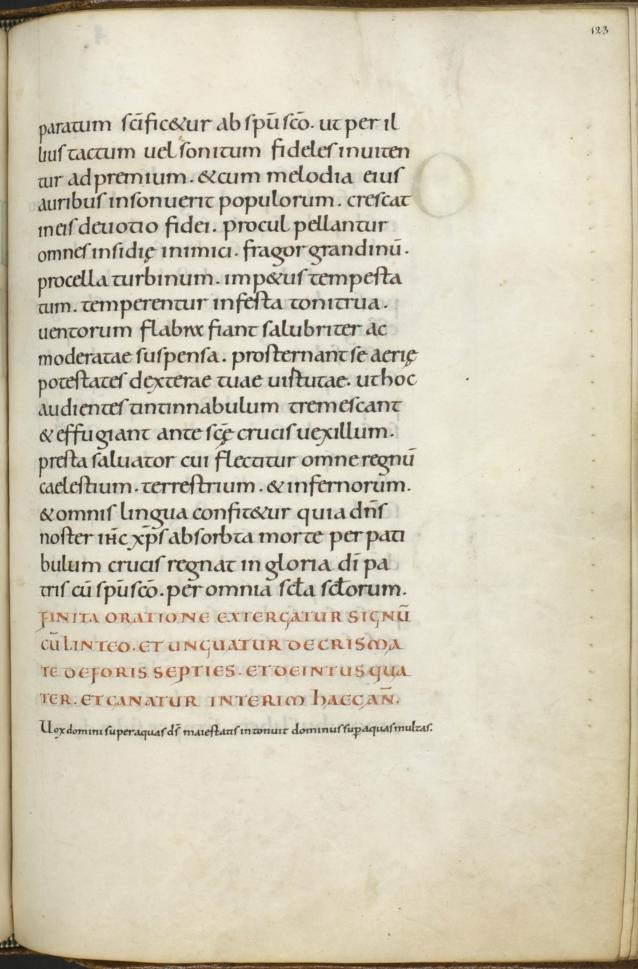 123
paratum sc̄ific&ur ab sp̄u sc̄o. ut per il
lius tactum uel sonitum fideles inuiten
tur ad premium. & cum melodia eius
auribus insonuerit populorum. crescat
in eis deuotio fidei. procul pellantur
omnes insidię inimici. fragor grandinū.
procella turbinum. imp&us tempesta
tum. temperentur infesta tonitrua.
uentorum flabra fiant salubriter ac
moderatae suspensa. prosternant se aerię
potestates dexterae tuae uirtutae. ut hoc
audientes tintinnabulum tremescant
& effugiant ante scę̄ crucis uexillum.
presta saluator cui flectitur omne regnū
caelestium. terrestrium. & infernorum.
& omnis lingua confit&ur quia dn̄s
noster ih̄c xp̄s absorbta morte per pati
bulum crucis regnat in gloria dī pa
tris cū sp̄u sc̄o. per omnia scła scłorum.
FINITA ORATIONE EXTERGATUR SIGNŪ
CŪ LINTEO. ET UNGUATUR DE CRISMA
TE DEFORIS SEPTIES. ET DEINTUS QUA
TER. ET CANATUR INTERIM HAEC AN̄.
Uox domini super aquas dſ maiestatis intonuit dominus sup aquas multas.